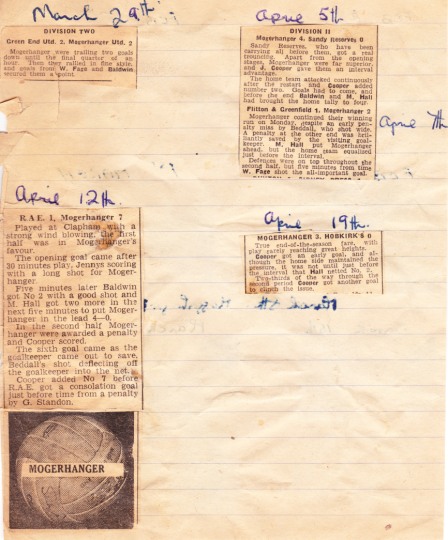 March 29th
DIVISION TWO
Green End Utd. 2, Mogerhanger Utd. 2
Mogerhanger were trailing two goals
down until the final quarter of an
hour. Then they rallied in fine style,
and goals from W. Page and Baldwin
secured them a point.
April 5th
DIVISION II
Mogerhanger 4, Sandy Reserves 0
Sandy Reserves, who have been
carrying all before them, got a real
trouncing. Apart from the opening
stages, Mogerhanger were far superior,
and J. Cooper gave them an interval
advantage.
The home team attacked continuously
after the restart and Cooper added
number two. Goals had to come, and
before the end Baldwin and M. Hall
had brought the home tally to four.
Flitton & Greenfield 1, Mogerhanger 2
Mogerhanger continued their winning
run on Monday, despite an early pen-
alty miss by Beddall, who shot wide.
A penalty at the other end was brilli-
antly saved by the visiting goal-
keeper. M. Hall put Mogerhanger
ahead, but the home team equalised
just before the interval.
Defences were on top throughout the
second half, but five minutes from time
W. Page shot the all-important goal.
April 7th
April 12th
R.A.E. 1, Mogerhanger 7
Played at Clapham with a
strong wind blowing, the first
half was in Mogerhanger's
favour.
The opening goal came after
30 minutes play, Jennys scoring
with a long shot for Moger-
hanger.
Five minutes later Baldwin
got No 2 with a good shot and
M. Hall got two more in the
next five minutes to put Moger-
hanger in the lead 4—0.
In the second half Moger-
hanger were awarded a penalty
and Cooper scored.
The sixth goal came as the
goalkeeper came out to save,
Beddall's shot deflecting off
the goalkeeper into the net.
Cooper added No 7 before
R.A.E. got a consolation goal
just before time from a penalty
by G. Standon.
MOGERHANGER
April 19th.
MOGERHANGER 3, HOBKIRK'S 0
True end-of-the-season fare, with
play rarely reaching great heights.
Cooper got an early goal, and al-
though the home side maintained the
pressure, it was not until just before
the interval that Hall netted No. 2.
Two-thirds of the way through the
second period Cooper got another goal
to clinch the issue.